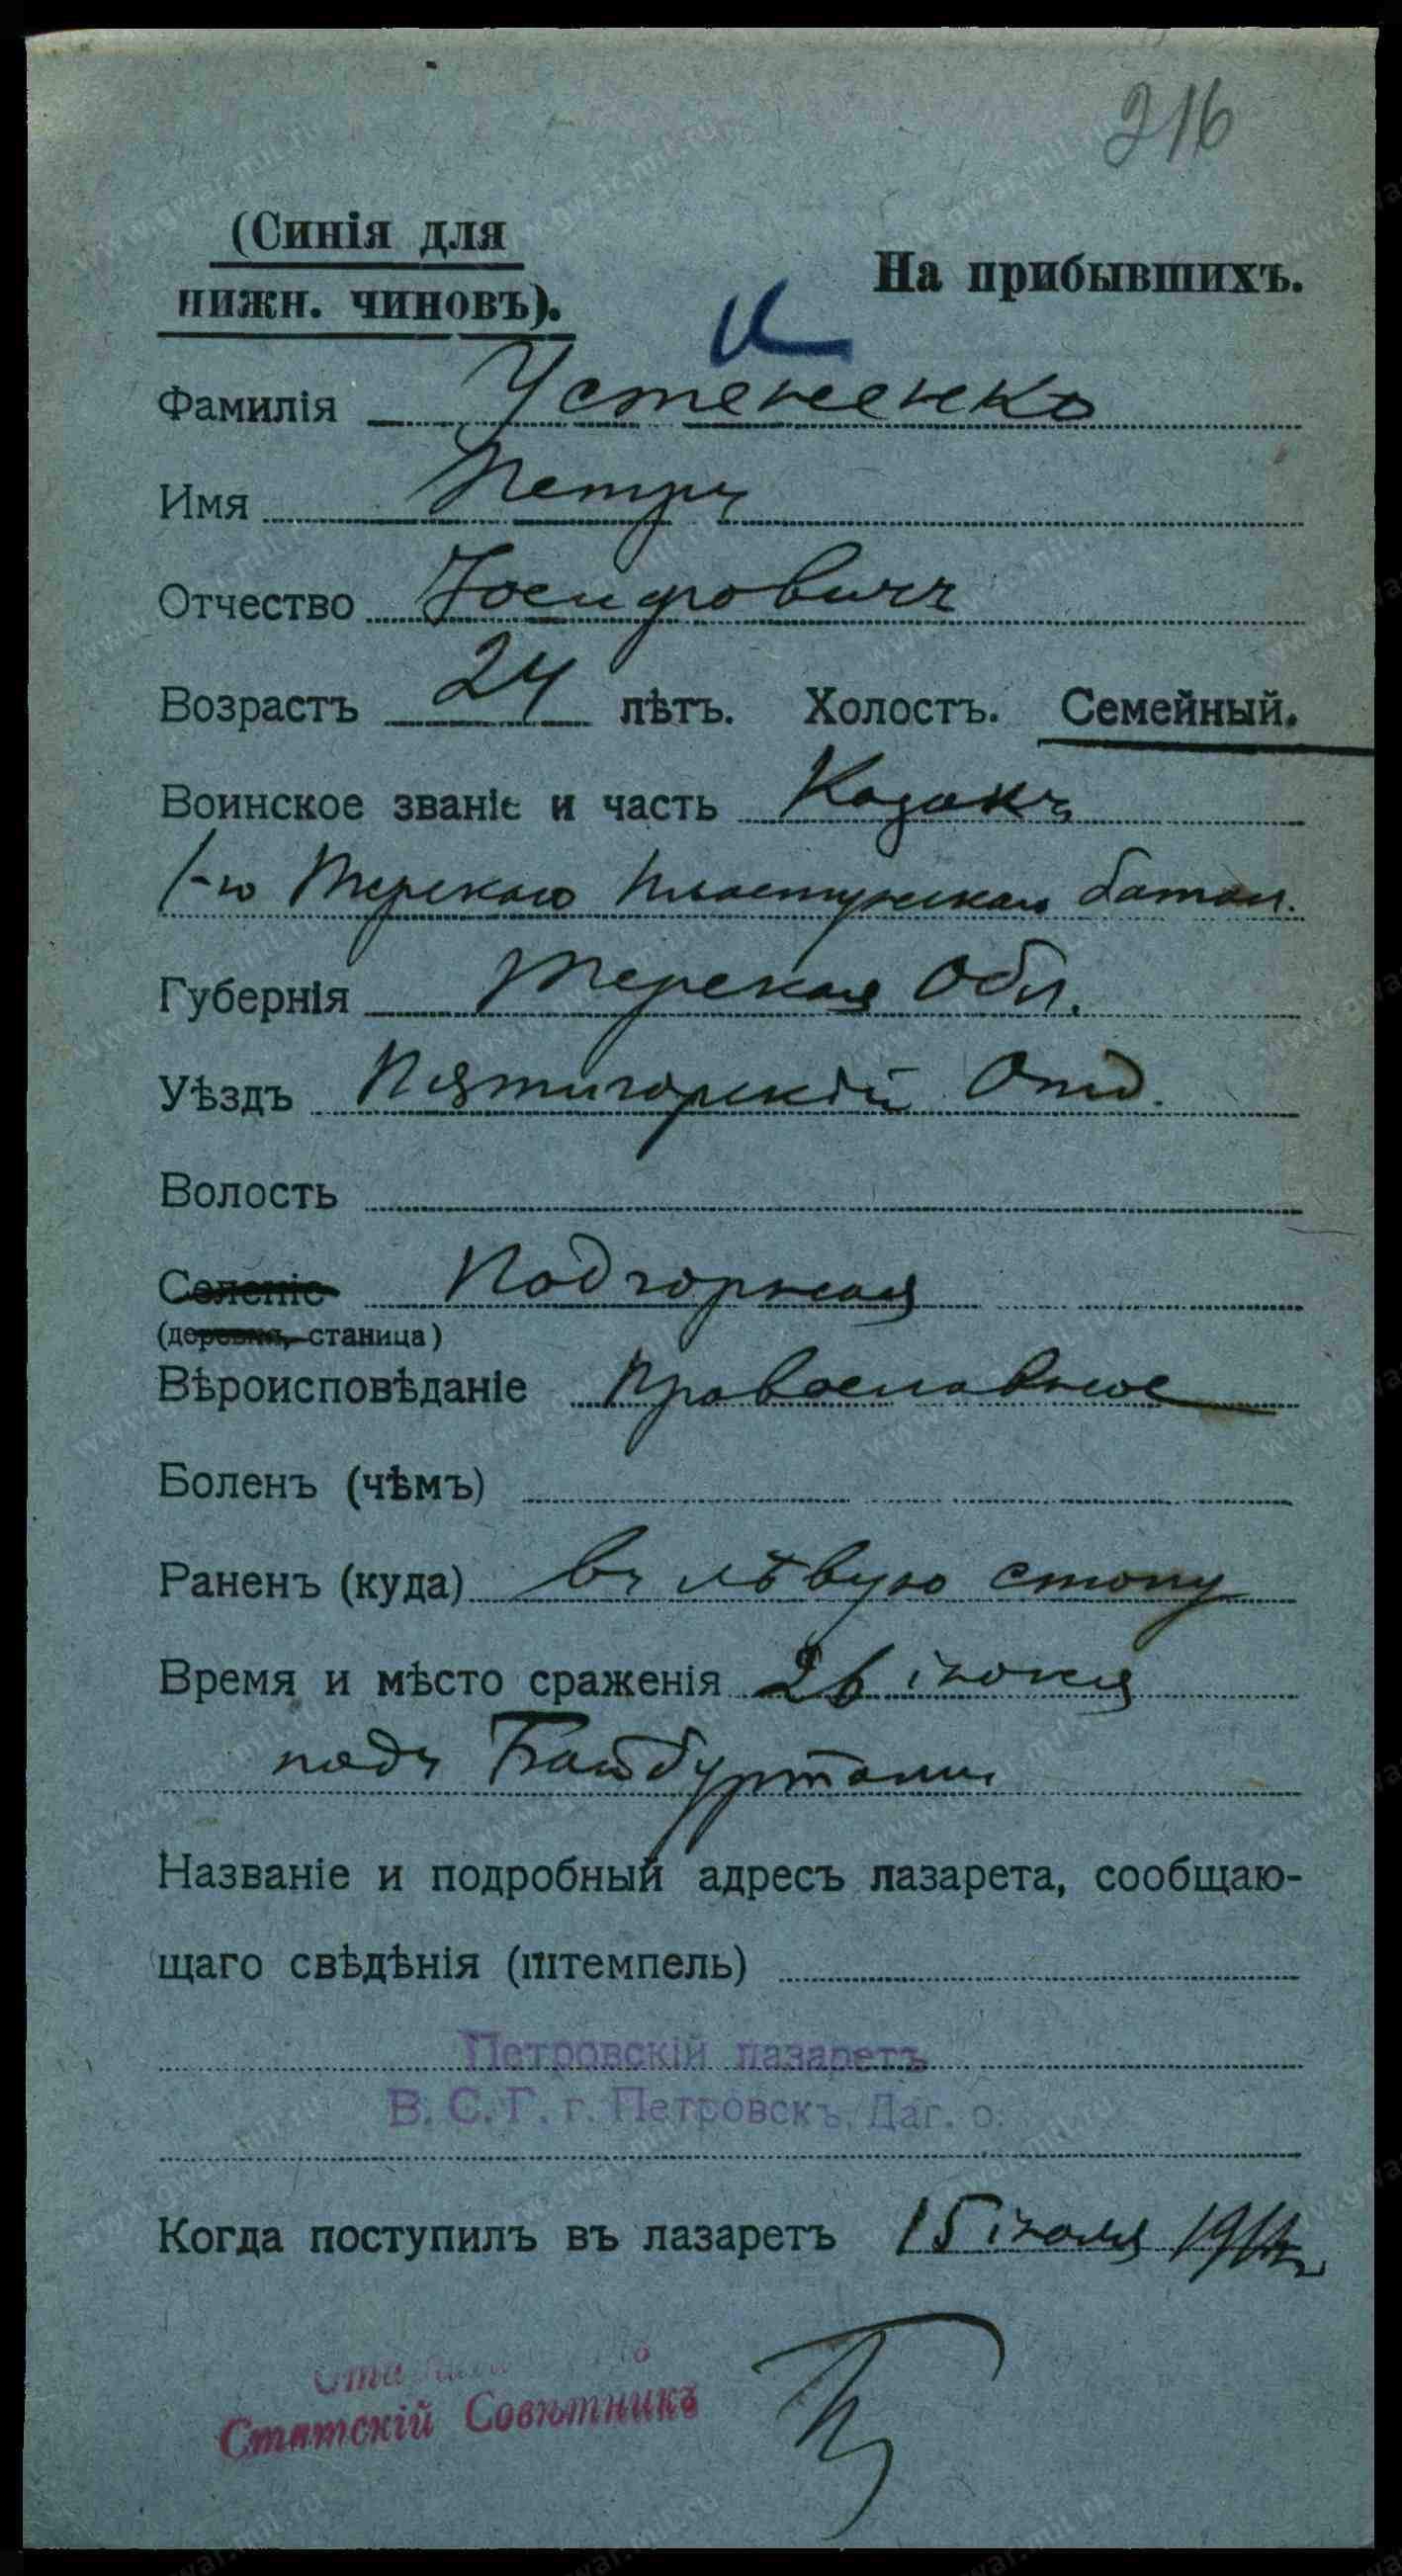 216
(Синія для
нижн. чиновъ).
На прибывшихъ.
Фамилія Устененко
Имя Петръ
Отчество Іосифовичъ
Возрастъ 24 лѣтъ. Холостъ. Семейный.
Воинское званіе и часть Козакъ
1-го Терскаго Пластунскаго батал.
Губернія Терская Обл.
Уѣздъ Пятигорскій Отд.
Волость
Селеніе Подгорная
(деревня, станица)
Вѣроисповѣданіе православное
Боленъ (чѣмъ)
Раненъ (куда) въ лѣвую стопу
Время и мѣсто сраженія 26 іюня
подъ Байбуртомъ
Названіе и подробный адресъ лазарета, сообщаю-
щаго свѣдѣнія (штемпель)
Петровскій лазаретъ
В. С. Г. г. Петровскъ, Даг. о.
Когда поступилъ въ лазаретъ 15 іюля
Статскій Совѣтникъ